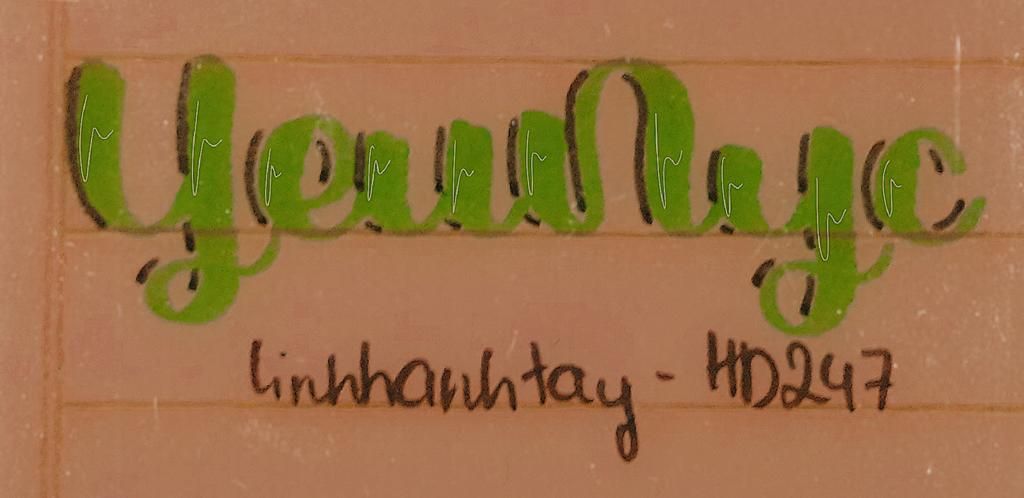 YeuNyc
linhhanhtay - HD247